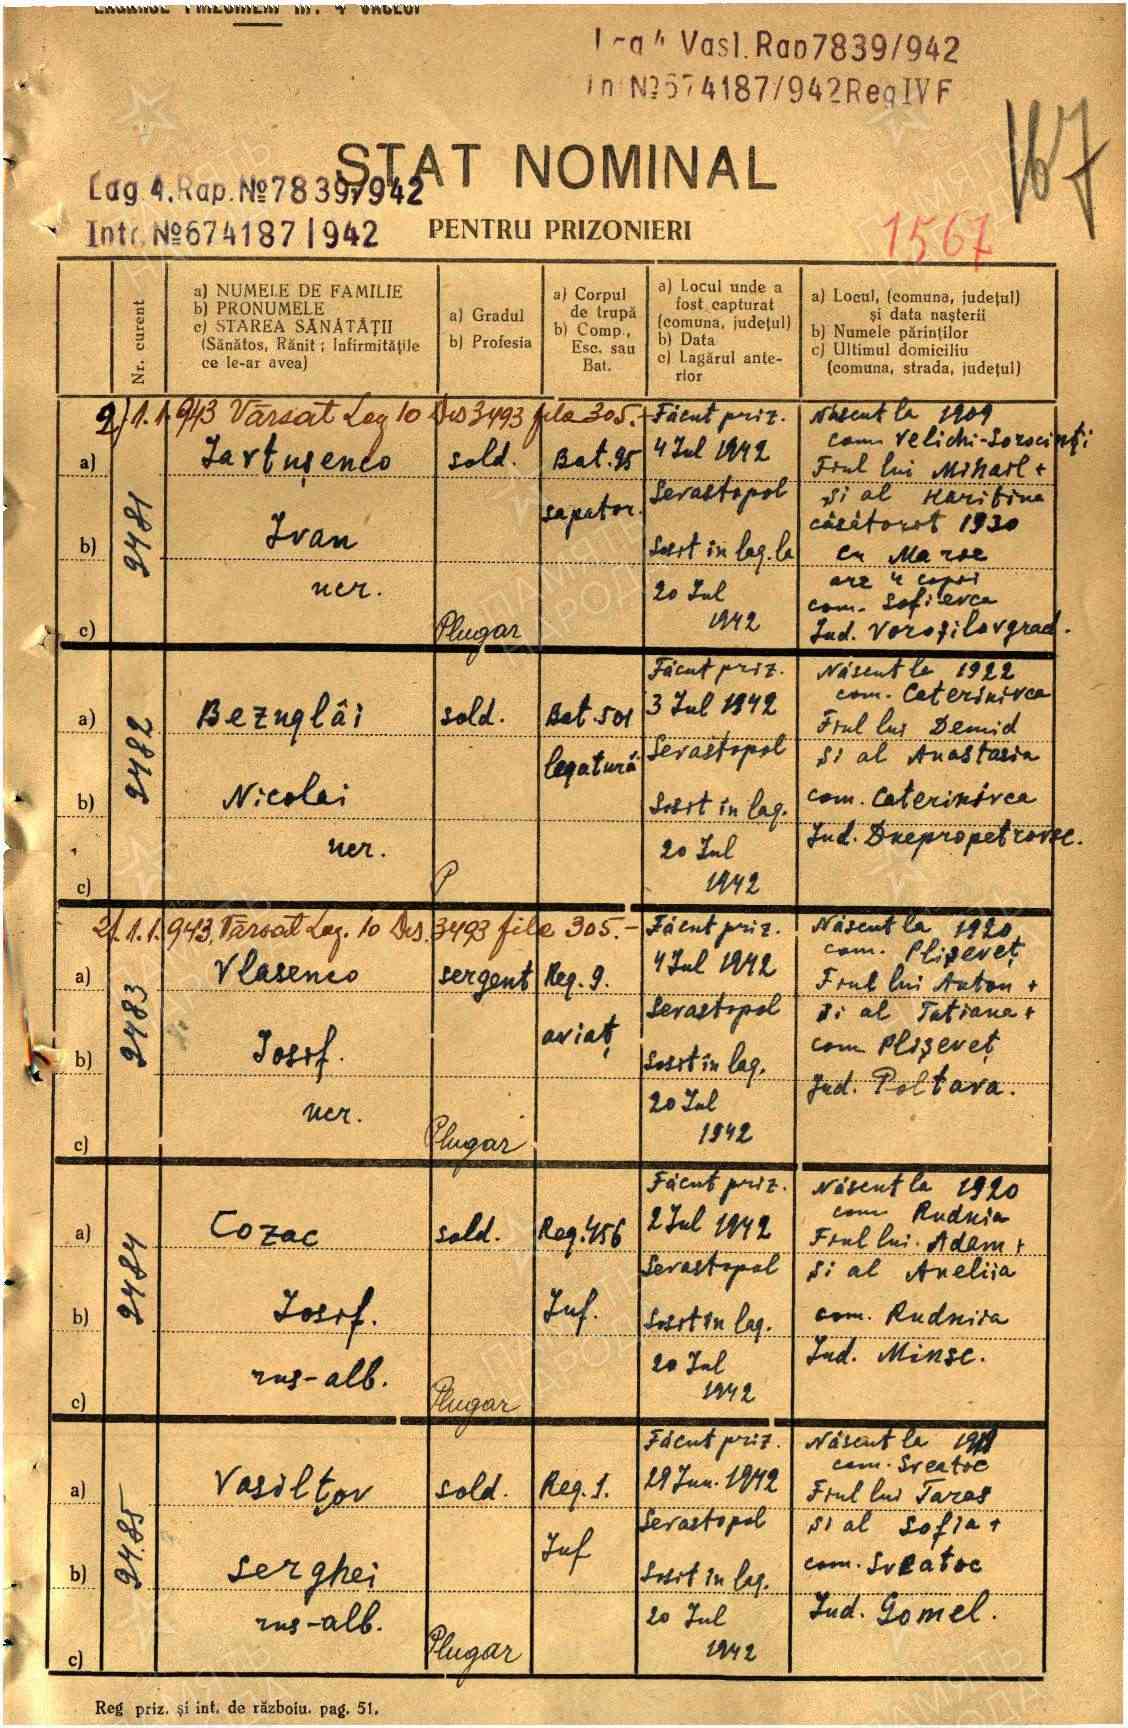 LAGĂRUL PRIZONIERI Nr. 4 VASLUI
Lag 4 Vasl. Rap 7839/942
Int №674187/942 Reg IV F
167
STAT NOMINAL
Lag. 4. Rap. №7839/942
Intr. №674187/942
PENTRU PRIZONIERI
1567
Nr. curent
a) NUMELE DE FAMILIE
b) PRONUMELE
c) STAREA SĂNĂTĂȚII
(Sănătos, Rănit ; Infirmitățile
ce le-ar avea)
a) Gradul
b) Profesia
a) Corpul
de trupă
b) Comp.,
Esc. sau
Bat.
a) Locul unde a
fost capturat
(comuna, județul)
b) Data
c) Lagărul ante-
rior
a) Locul, (comuna, județul)
și data nașterii
b) Numele părinților
c) Ultimul domiciliu
(comuna, strada, județul)
2/.1.1.943 Vărsat Lag 10 Ds 3493 fila 305.-
2481
a)
b)
c)
Iartușenco
Ivan
ucr.
sold.
Plugar
Bat. 95
sapator.
Făcut priz.
4 Iul 1942
Sevastopol
Sosit în lag. la
20 Iul
1942
Născut la 1909
com Velichi-Sorocinți
Fiul lui Mihail +
și al Haritina
căsătorit 1930
cu Marse
are 4 copii
com. Sofievca
Jud. Voroșilovgrad.
2482
a)
b)
c)
Bezuglâi
Nicolai
ucr.
sold.
P
Bat. 501
legatură
Făcut priz.
3 Iul 1942
Sevastopol
Sosit în lag.
20 Iul
1942
Născut la 1922
com. Caterinivca
Fiul lui Demid
și al Anastasia
com. Caterinivca
Jud. Dnepropetrovsc.
2/.1.1.943. Vărsat Lag. 10 Ds. 3493 fila 305.-
2483
a)
b)
c)
Vlasenco
Iosif.
ucr.
sergent
Plugar
Reg. 9.
aviaț
Făcut priz.
4 Iul 1942
Sevastopol
Sosit în lag.
20 Iul
1942
Născut la 1920
com. Plișeveț
Fiul lui Anton +
și al Tatiana +
com Plișeveț
Jud. Poltava.
2484
a)
b)
c)
Cozac
Iosif.
rus-alb.
sold.
Plugar
Reg. 456
Inf.
Făcut priz.
2 Iul 1942
Sevastopol
Sosit în lag.
20 Iul
1942
Născut la 1920
com Rudnia
Fiul lui. Adam +
și al Aneliia
com. Rudniia
Jud. Minsc.
2485
a)
b)
c)
Vasilțov
Serghei
rus-alb.
sold.
Plugar
Reg. 1.
Inf
Făcut priz.
29 Iun. 1942
Sevastopol
Sosit în lag.
20 Iul
1942
Născut la
com. Sveatoc
Fiul lui Taras
și al Sofia +
com. Sveatoc
Jud. Gomel.
Reg priz. și int. de războiu. pag. 51.
ПАМЯТЬ
НАРОДА